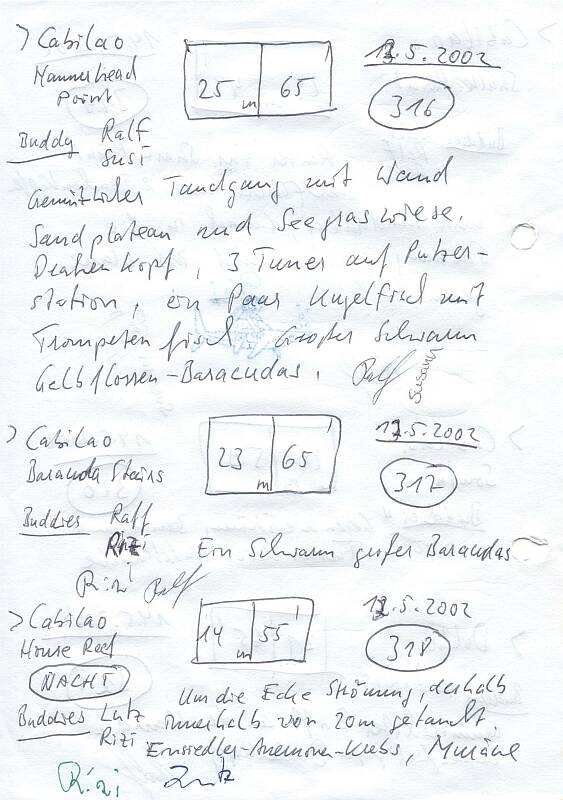 > Cabilao
Hammerhead
Point
25 m 65'
12.5.2002
316
Buddy Ralf
Susi
Gemütlicher Tauchgang mit Wand
Sandplateau und Seegraswiese.
Drachenkopf, 3 Tuner auf Putzer-
station, ein Paar Kugelfisch mit
Trompetenfisch. Großer Schwarm
Gelbflossen-Baracudas.
Ralf Susann
> Cabilao
Baracuda Stairs
23 m 65'
12.5.2002
317
Buddies Ralf
Rizi
Ein Schwarm großer Baracudas
Rizi Ralf
> Cabilao
House Reef
NACHT
14 m 55'
12.5.2002
318
Buddies Lutz
Rizi
Um die Ecke Strömung, deshalb
innerhalb von 20m getaucht.
Einsiedler-Anemonen-Krebs, Muräne
Rizi Lutz